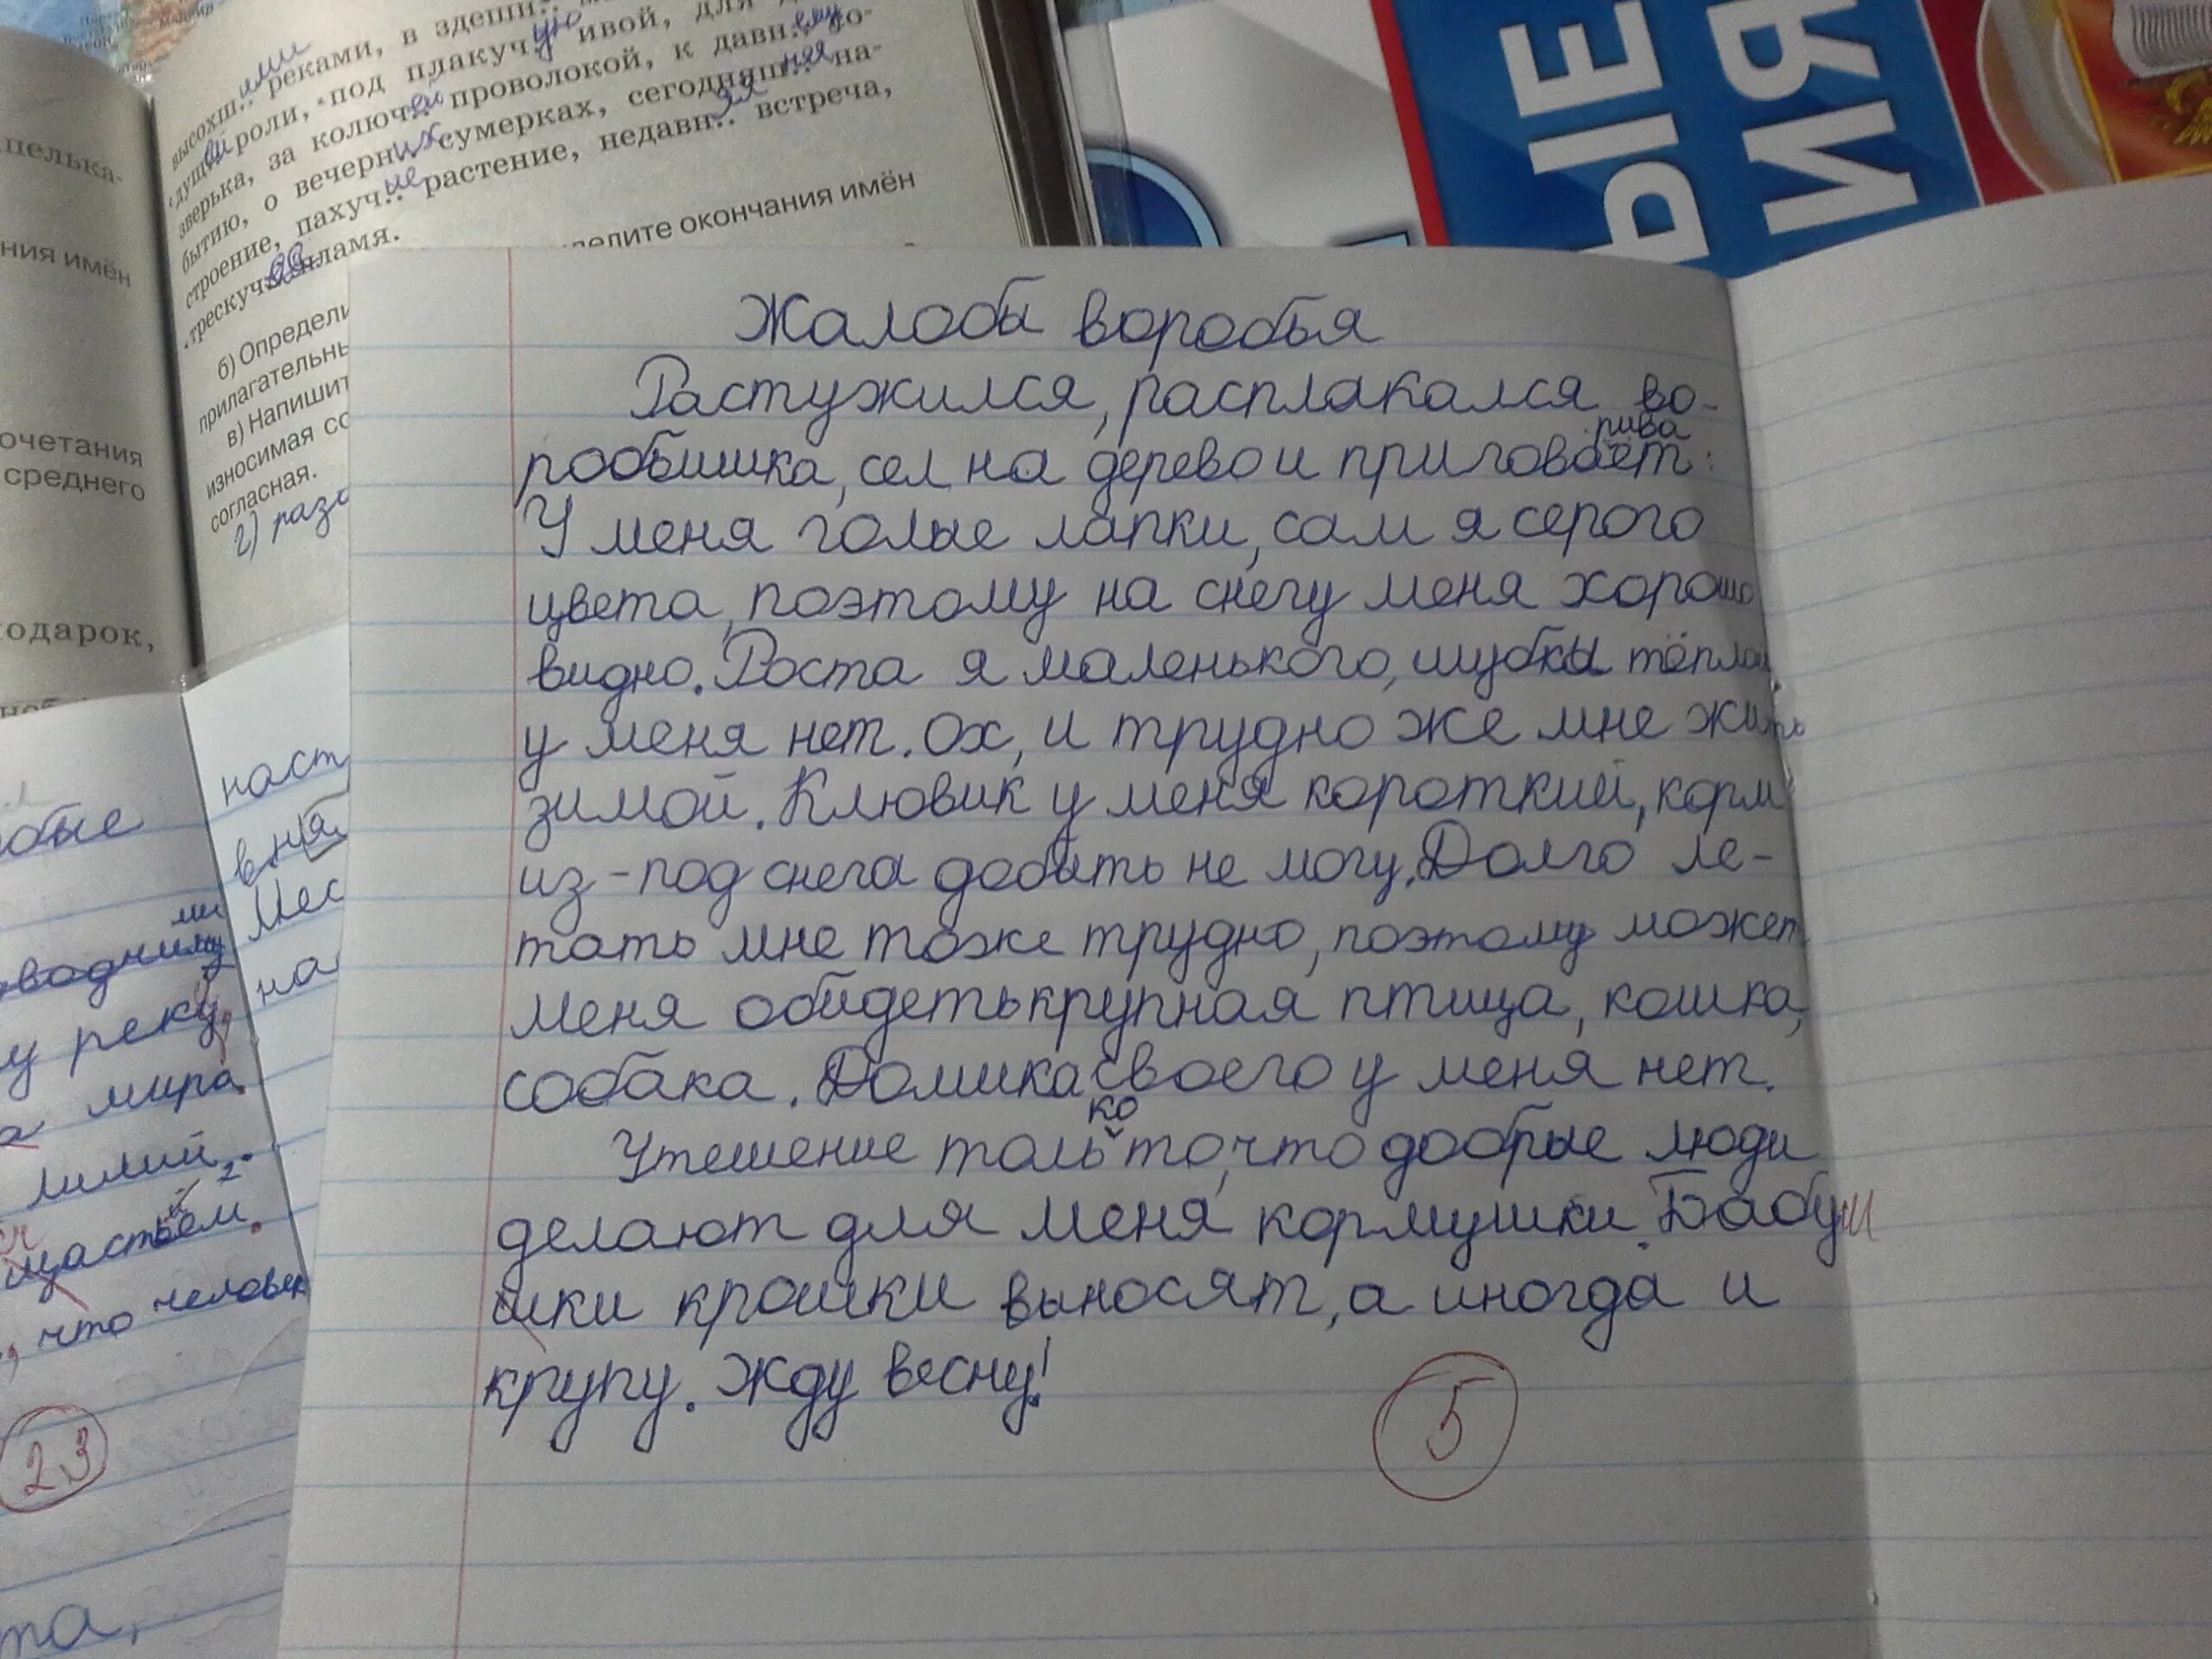 реками, в здешн..
роли, под плакуч..ую ивой, для
зверька, за колюч..ей проволокой, к давн..ему
бытию, о вечерних сумерках, сегодняш..няя на-
строение, пахуч..ие растение, недавн..яя встреча,
трескуч пламя.
делите окончания имён
б) Определи
прилагательн
в) Напишит
износимая со
согласная.
г) разо
пелька-
ния имён
очетания
среднего
одарок,
ЫЕ
ИЯ
Жалобы воробья
Растужился, расплакался во-
робьишка, сел на дерево и приговаривает:
У меня голые лапки, сам я серого
цвета, поэтому на снегу меня хорошо
видно. Роста я маленького, шубки тёплой
у меня нет. Ох, и трудно же мне жить
зимой. Клювик у меня короткий, корм
из-под снега добыть не могу. Долго ле-
тать мне тоже трудно, поэтому может
меня обидеть крупная птица, кошка,
собака. Домика своего у меня нет.
Утешение только то, что добрые люди
делают для меня кормушки. Бабуш
шки крошки выносят, а иногда и
крупу. Жду весну!
5
наст
вня
Мес
на
обые
водными
у реку,
мира.
лилий.
щастьем.
, что человек
23
та,